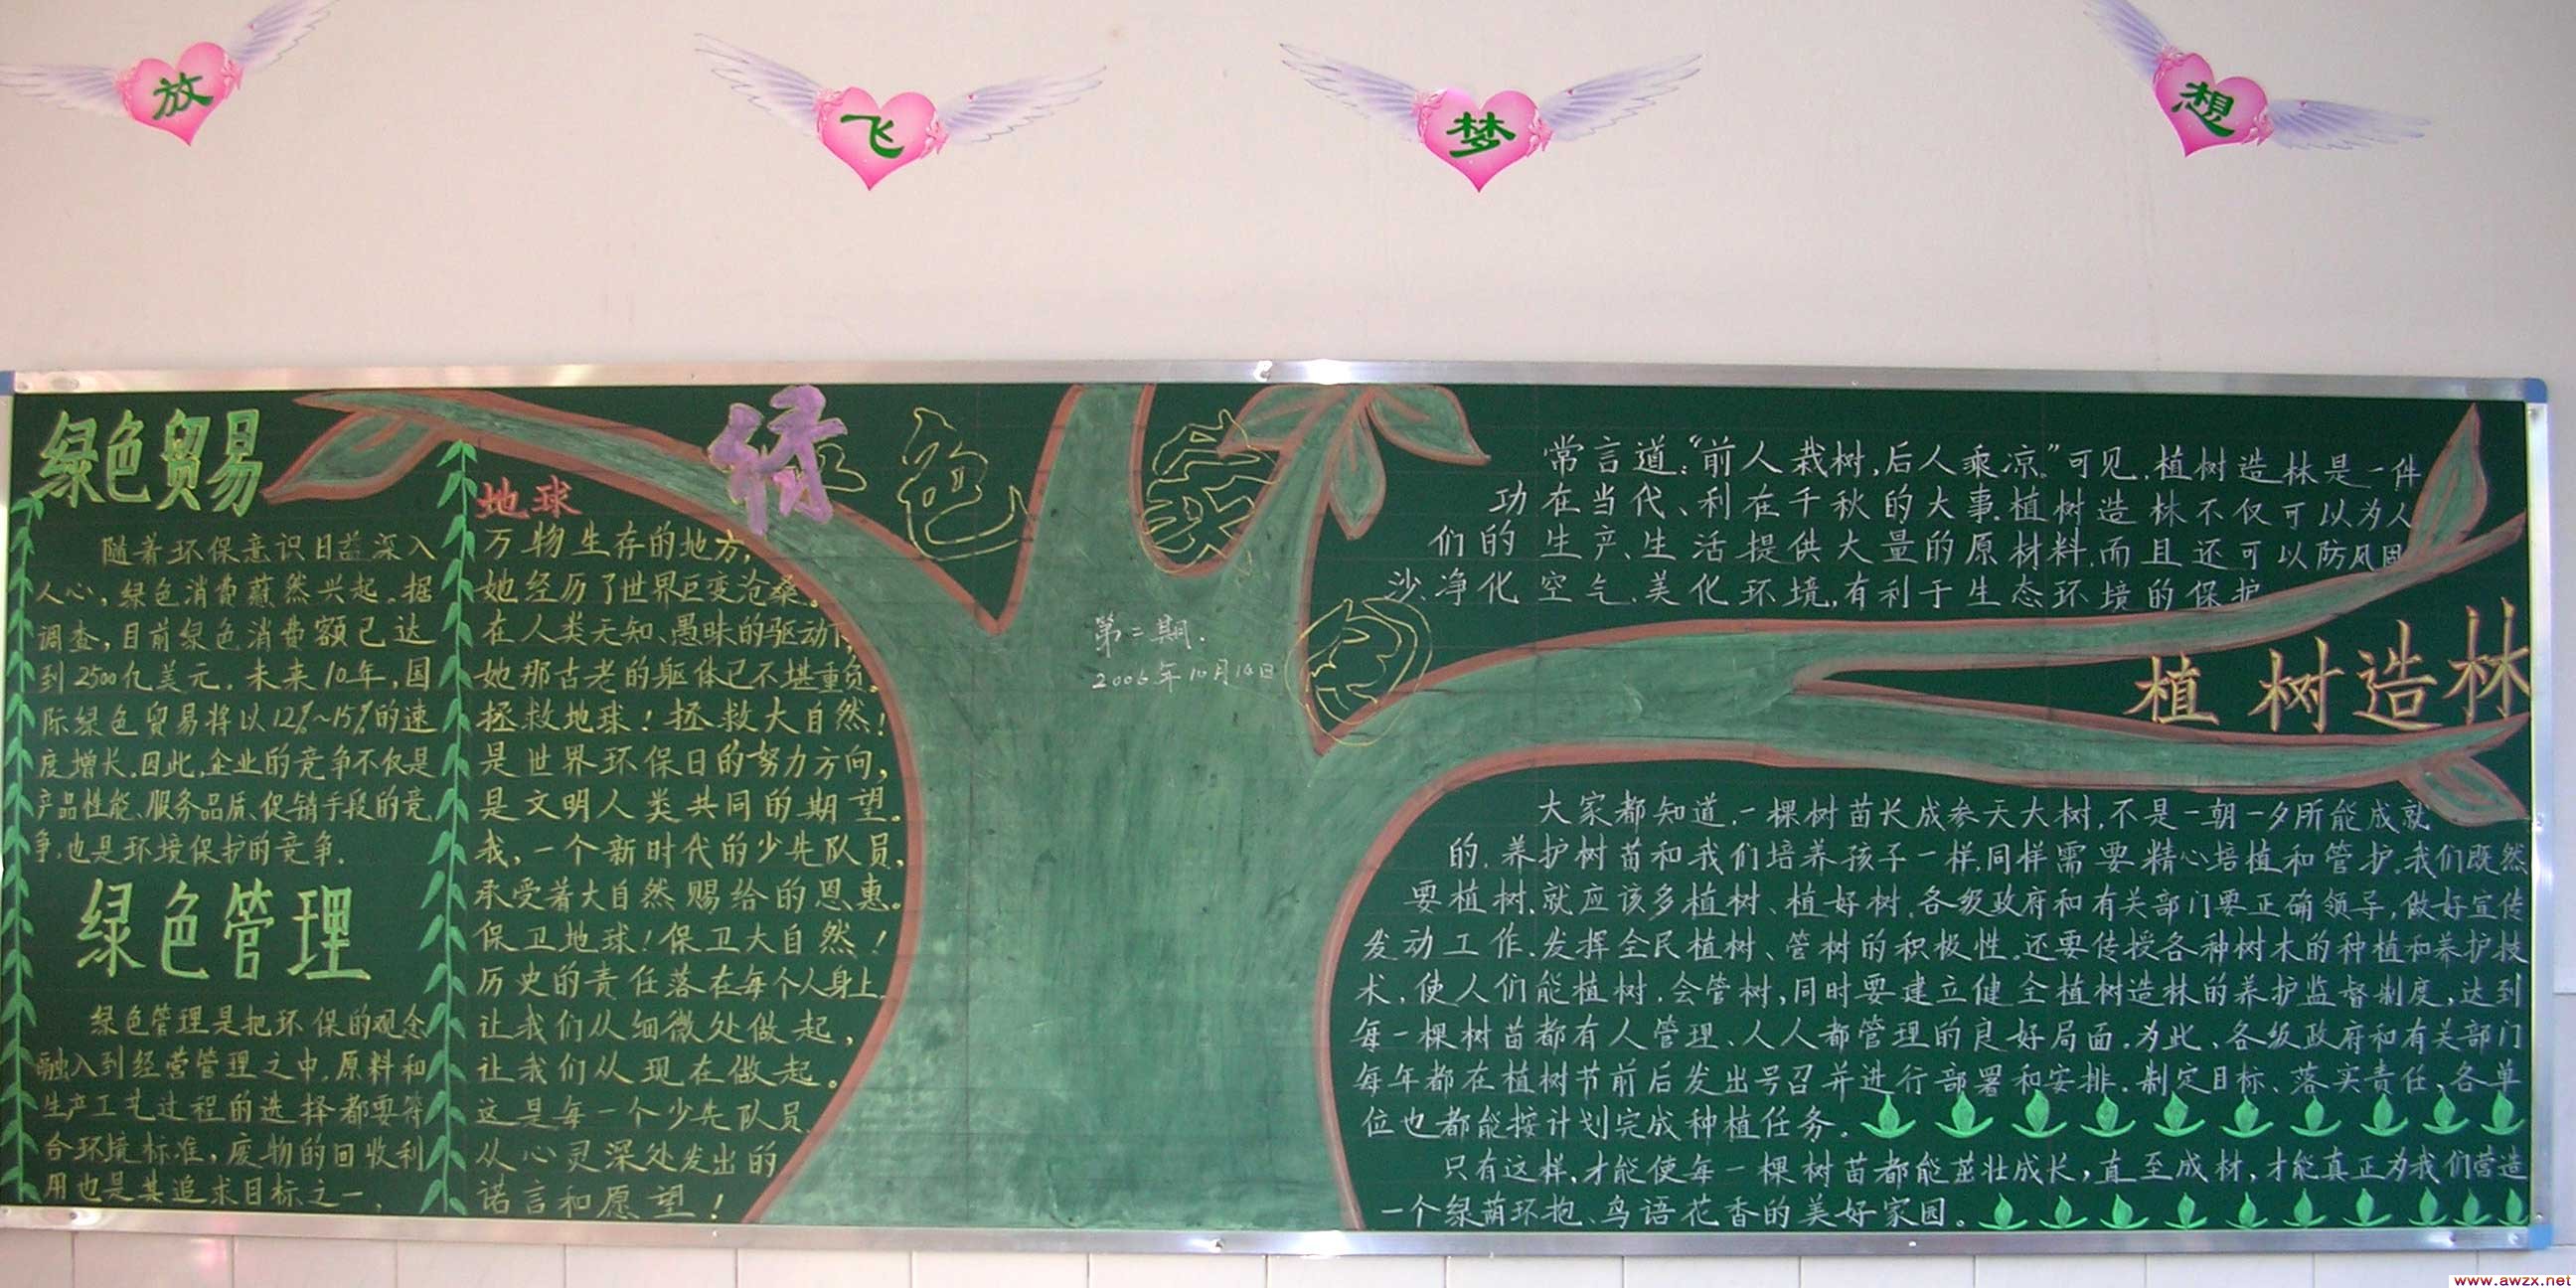 放 飞 梦 想
绿色贸易
随着环保意识日益深入
人心，绿色消费蔚然兴起。据
调查，目前绿色消费额已达
到2500亿美元。未来10年，国
际绿色贸易将以12%~15%的速
度增长。因此，企业的竞争不仅是
产品性能、服务品质、促销手段的竞
争，也是环境保护的竞争。
绿色管理
绿色管理是把环保的观念
融入到经营管理之中，原料和
生产工艺过程的选择都要符
合环境标准，废物的回收利
用也是其追求目标之一，
地球
万物生存的地方，
她经历了世界巨变沧桑。
在人类无知、愚昧的驱动下，
她那古老的躯体已不堪重负。
拯救地球！拯救大自然！
是世界环保日的努力方向，
是文明人类共同的期望。
我，一个新时代的少先队员，
承受着大自然赐给的恩惠。
保卫地球！保卫大自然！
历史的责任落在每个人身上。
让我们从细微处做起，
让我们从现在做起。
这是每一个少先队员
从心灵深处发出的
诺言和愿望！
绿色家园
第二期.
2006年10月14日
常言道：“前人栽树，后人乘凉”可见，植树造林是一件
功在当代、利在千秋的大事。植树造林不仅可以为人
们的生产、生活提供大量的原材料，而且还可以防风固
沙、净化空气、美化环境，有利于生态环境的保护
植树造林
大家都知道，一棵树苗长成参天大树，不是一朝一夕所能成就
的，养护树苗和我们培养孩子一样，同样需要精心培植和管护。我们既然
要植树，就应该多植树、植好树，各级政府和有关部门要正确领导，做好宣传
发动工作，发挥全民植树、管树的积极性。还要传授各种树木的种植和养护技
术，使人们能植树，会管树，同时要建立健全植树造林的养护监督制度，达到
每一棵树苗都有人管理、人人都管理的良好局面。为此、各级政府和有关部门
每年都在植树节前后发出号召并进行部署和安排。制定目标、落实责任、各单
位也都能按计划完成种植任务。
只有这样，才能使每一棵树苗都能茁壮成长，直至成材，才能真正为我们营造
一个绿荫环抱、鸟语花香的美好家园。
www.awzx.net